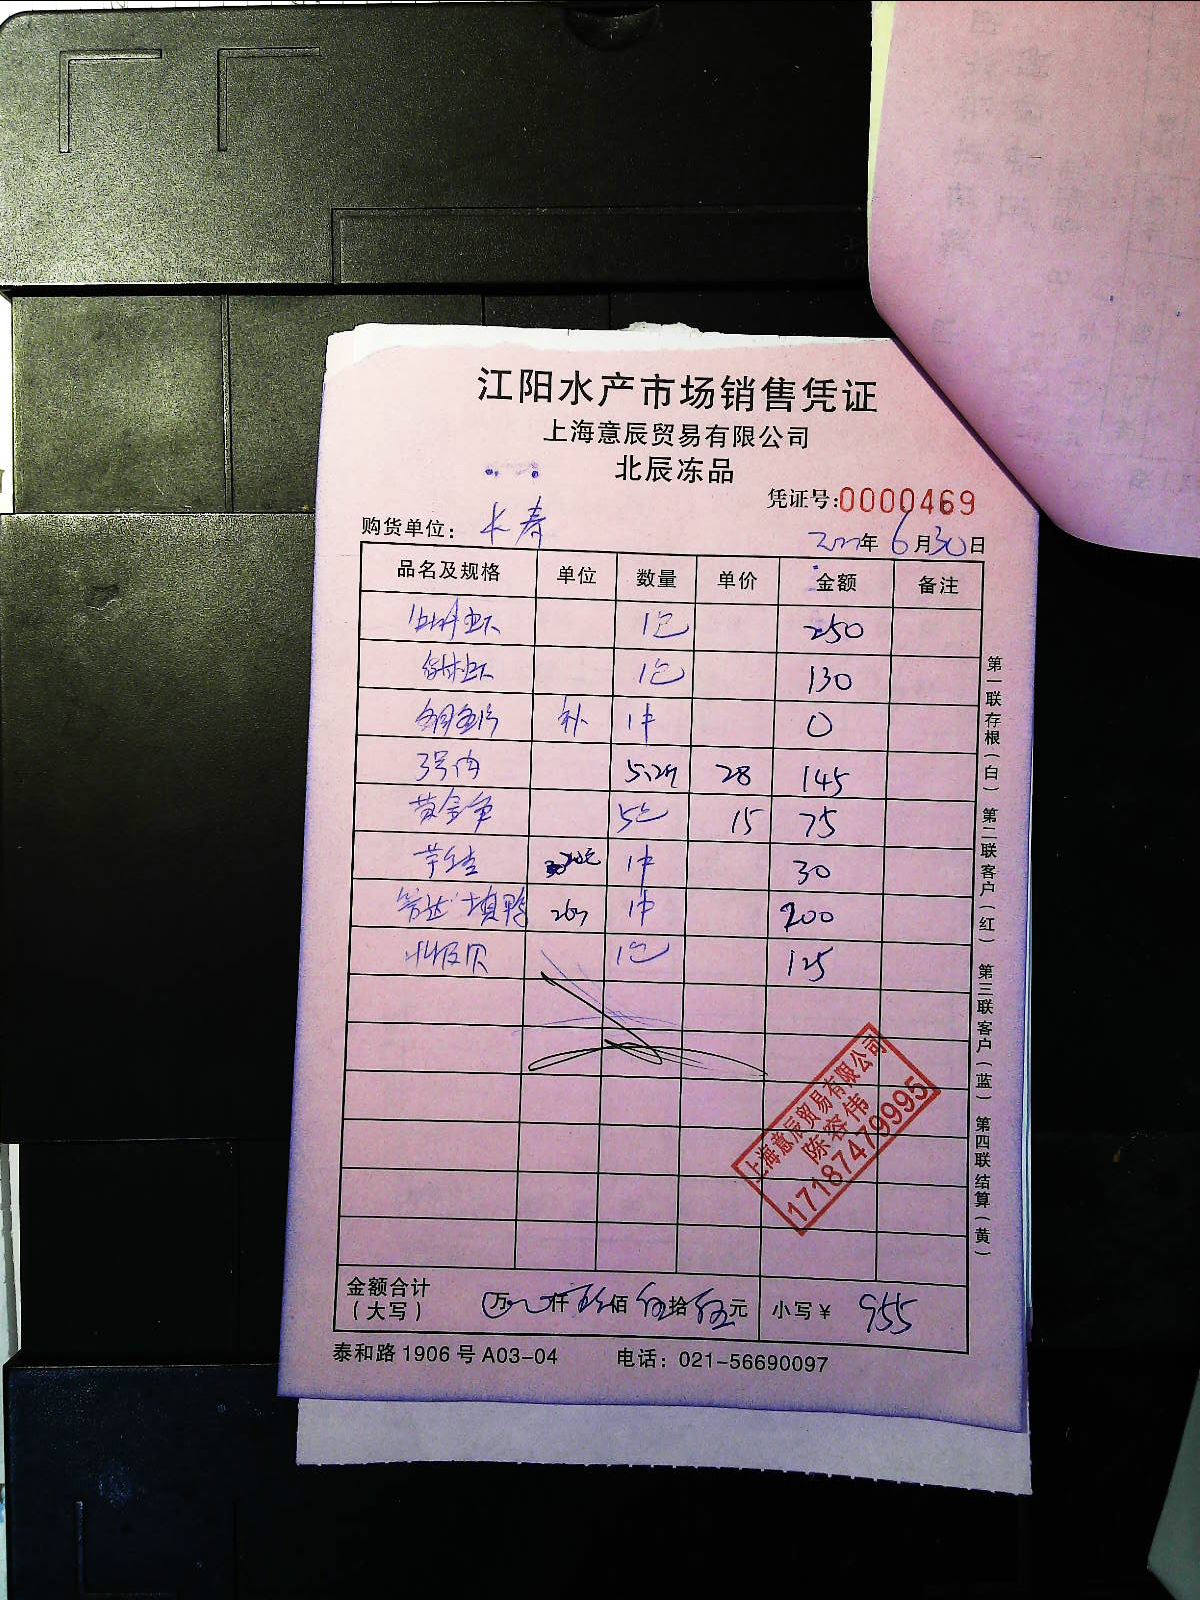 江阳水产市场销售凭证
上海意辰贸易有限公司
北辰冻品
凭证号:0000469
购货单位: 长春
2022年6月30日
品名及规格 单位 数量 单价 金额 备注
1包 250
1包 130
补 1件 0
3号肉 28 145
黄金 5包 15 75
1件 30
填鸭 1件 200
北极贝 1包 125
上海意辰贸易有限公司
陈容伟
17187479995
金额合计
(大写) 万 仟 玖佰 伍拾 伍元 小写¥ 955
泰和路1906号A03-04 电话: 021-56690097
第一联存根(白) 第二联客户(红) 第三联客户(蓝) 第四联结算(黄)